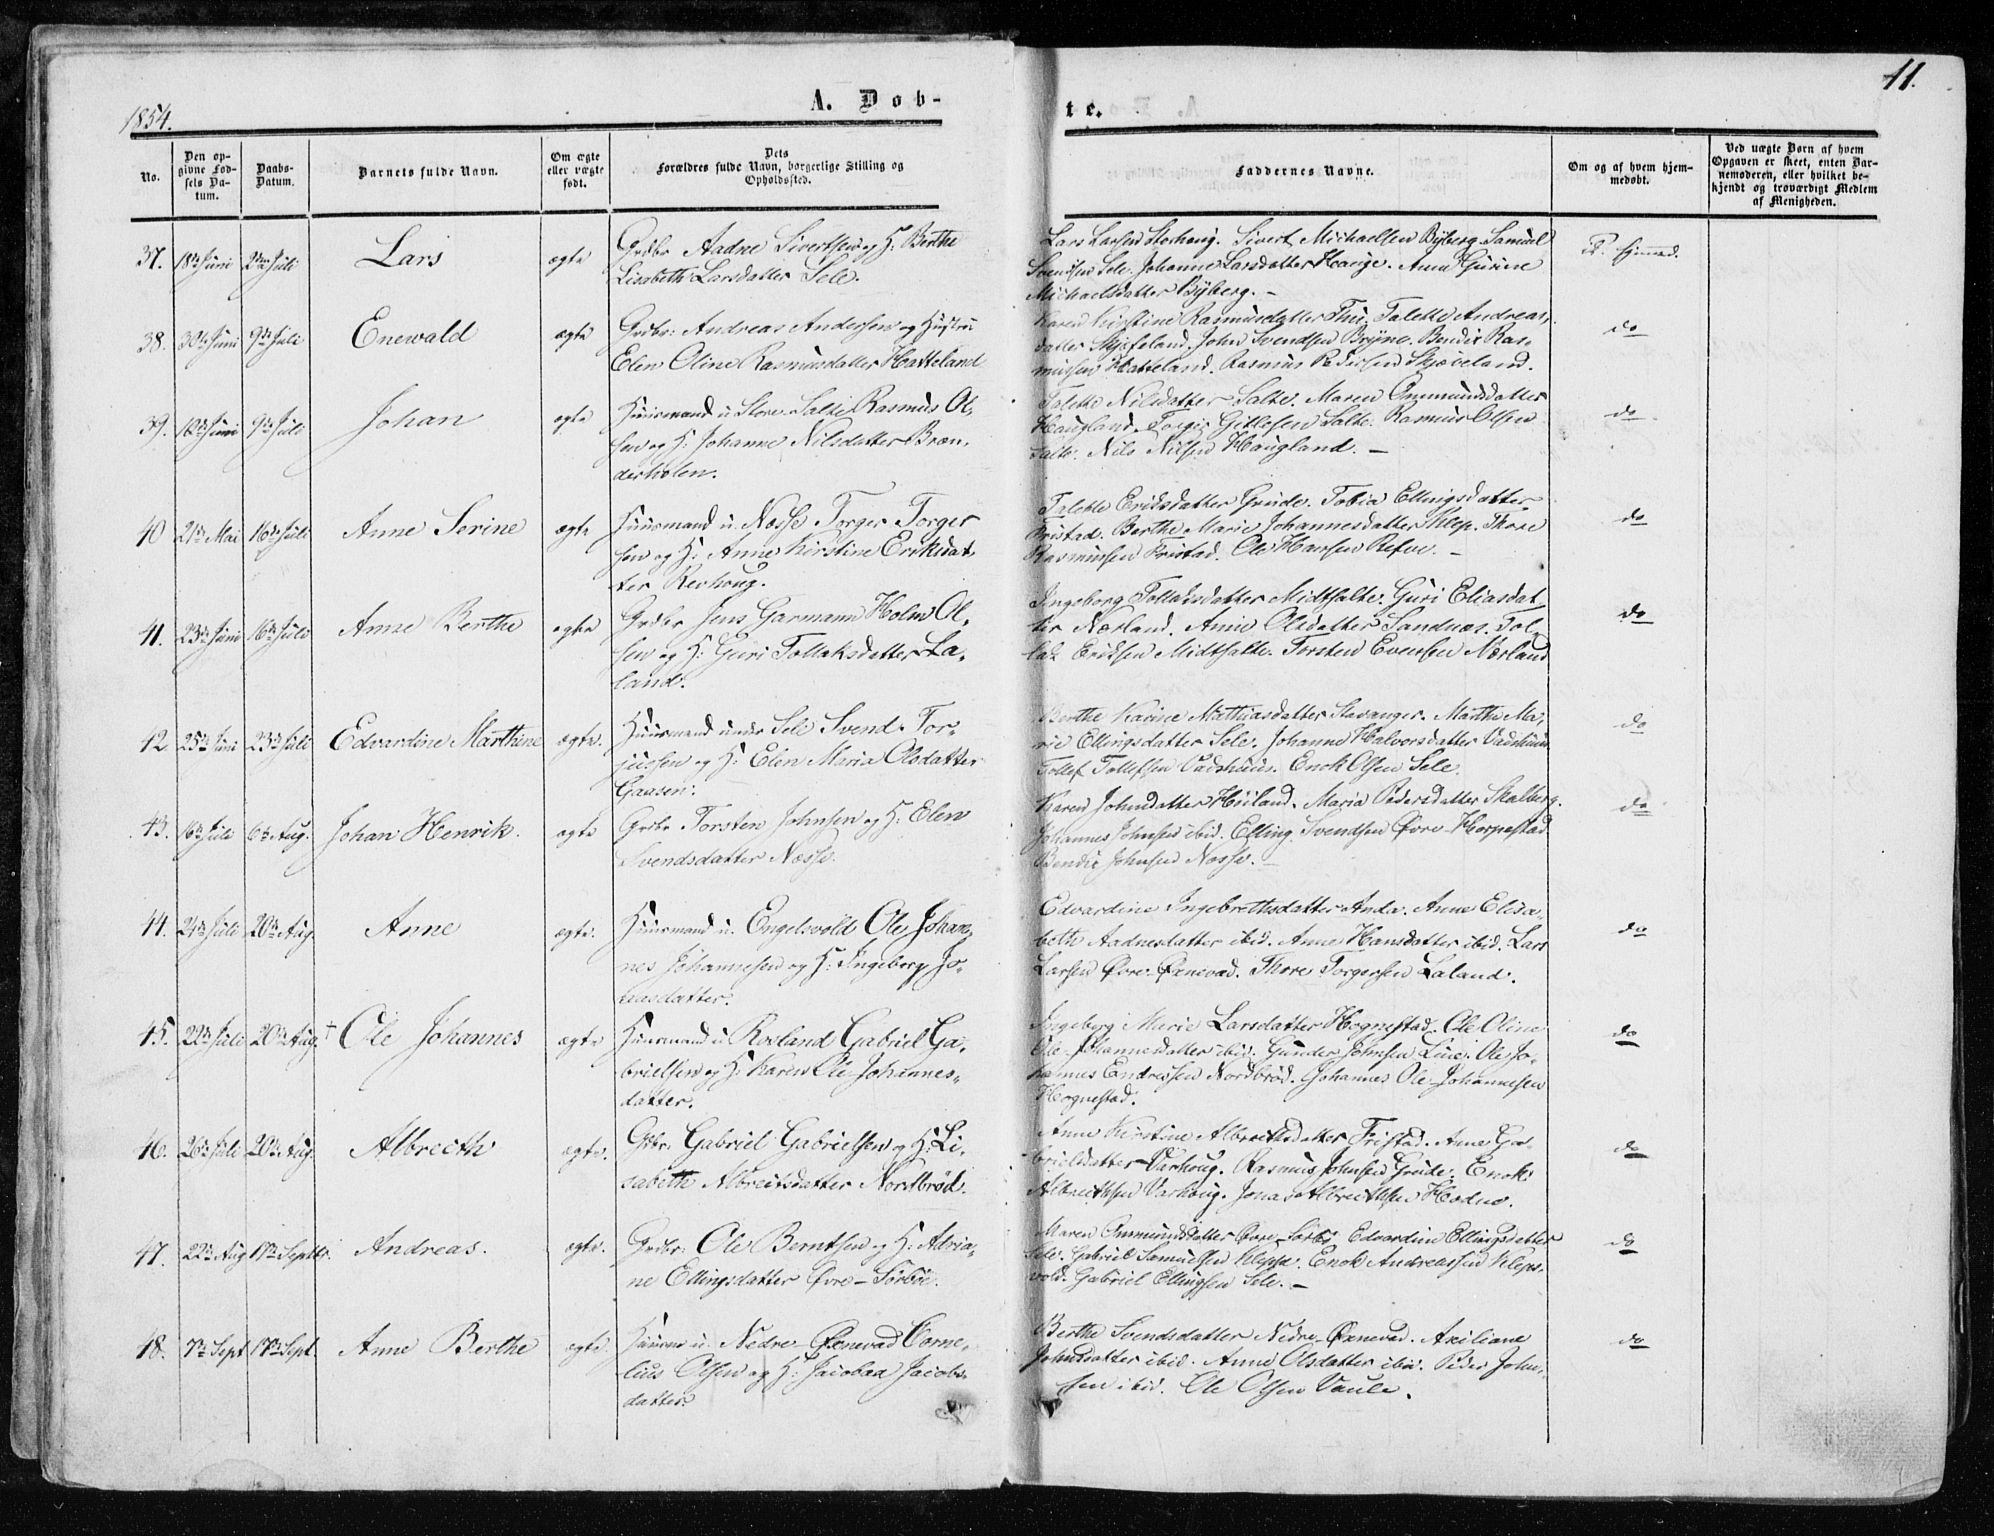 11.
1854.
A. Døb-
te.
No.
Den op-
givne Fød-
sels Da-
tum.
Daabs-
Datum.
Barnets fulde Navn.
Om ægte
eller uægte
født.
Dets
Forældres fulde Navn, borgerlige Stilling og
Opholdssted.
Faddernes Navne.
Om og af hvem hjem-
medøbt.
Ved uægte Børn af hvem
Opgaven er skeet, enten Bar-
nemoderen, eller hvilket be-
kjendt og troværdigt Medlem
af Menigheden.
37. 18de Juni 2den Juli Lars ægte
Grdbr Aadne Sivertsen og H: Berthe
Lisabeth Larsdatter Sele.
Lars Larsen Storhaug. Sivert Michaelsen Byberg. Samuel
Svendsen Sele. Johanne Larsdatter Hauge. Anne Gurine
Michaelsdatter Byberg. –
38. 30de Juni 9de Juli Enewald ægte
Grdbr: Andreas Andersen og Hustru
Elen Oline Rasmusdatter Hatteland
Karen Kirstine Rasmusdatter Thu. Talette Andreas-
datter Skjefeland. John Svendsen Bryne. Bendix Ras-
musen Hatteland. Rasmus Pedersen Skjæveland.
do
39. 9de Juli Johan ægte
Huusmand u. Store Salte Rasmus Ol-
sen og H: Johanne Nilsdatter Bræn-
derholen.
Talette Nilsdatter Salte. Maren Ommundsdatter
Haugland. Torgir Gitlesen Salte. Rasmus Olsen
Salte. Nils Nilsen Haugland. –
do
40 21de Mai 16de Juli Anne Serine ægte
Huusmand u. Næsse Torger Torger
sen og H: Anne Kirstine Eriksdat-
ter Revhoug.
Talette Eriksdatter Grude. Tobia Ellingsdatter
Fristad. Berthe Marie Johannesdatter Klep. Thore
Rasmussen Fristad. Ole Hansen Refve. –
do
41. 23de Juni 16de Juli Anne Berthe ægte
Grdbr Jens Garmann Holm Ol-
sen og H: Guri Tollaksdatter La-
land.
Ingeborg Tollaksdatter Midtsalte. Guri Eliasdat
ter Nærland. Anne Olsdatter Sandnæs. Tol-
lak Eriksen Midtsalte. Torsten Evensen Nærland
do
42 25de Juni 23de Juli Edvardine Marthine ægte.
Huusmand under Sele Svend Tor-
jussen og H: Elen Maria Olsdatter
Gaasen.
Berthe Karine Mathiasdatter Stavanger. Marthe Ma-
rie Ellingsdatter Sele. Johanne Halvorsdatter Vadshuus
Tollef Tollefsen Vadshuus. Enok Olsen Sele.
do
43. 16de Juli 6te Aug. Johan Henrik. ægte
Grdbr Torsten Johnsen og H: Elen
Svendsdatter Næsse.
Karen Johnsdatter Huland. Maria Pedersdatter Skalberg.
Johannes Johnsen ibid. Elling Svendsen Øvre-Horpestad
Bendix Johnsen Næsse. –
do
44. 24de Juli 20de Aug. Anne ægte.
Huusmand u. Engelsvold Ole Johan-
nes Johannesen og H: Ingeborg Jo-
nasdatter.
Edvardine Ingebrethsdatter Anda. Anne Elisa-
beth Aadnesdatter ibid. Anne Hansdatter ibid. Lars
Larsen Øvre-Øxnevad. Thore Torgersen Laland.
do
45. 22de Juli 20de Aug. † Ole Johannes ægte
Huusmand u. Rosland Gabriel Ga-
brielsen og H: Karen Ole Johannes-
datter.
Ingeborg Marie Larsdatter Hognestad. Ole Oline
Ole-Johannesdatter ibid. Gunder Johnsen Line. Ole Jo-
hannes Endresen Nordbrød. Johannes Ole-Johannesen
Hognestad.
do
46. 26de Juli 20de Aug. Albrecth ægte.
Grbr. Gabriel Gabrielsen og H: Li-
sabeth Albreitsdatter Nordbrød.
Anne Kirstine Albreithsdatter Fristad. Anne Ga-
brielsdatter Varhoug. Rasmus Johnsen Grude. Enok
Albreithsen Varhoug. Jonas Albreithsen Hodne.
do
47. 22de Aug 17de Septbr. Andreas. ægte.
Grdbr: Ole Berntsen og H: Adria-
ne Ellingsdatter Øvre-Sørbøe.
Maren Ommundsdatter Øvre-Sørbø. Edvardine Ellingsdatter
Sele. Gabriel Samuelsen Kleppe. Enok Andreassen Kleps-
vold. Gabriel Ellingsen Sele. –
do
48. 7de Sept 17de Sept. Anne Berthe ægte.
Huusm u. Nedre-Øxnevad Corne-
lius Olsen og H: Jacobaa Jacobs-
datter.
Berthe Svendsdatter Nedre-Øxnevad. Axiliane
Johnsdatter ibid. Anne Olsdatter ibid. Peder John-
sen ibid. Ole Olsen Vaule.
do